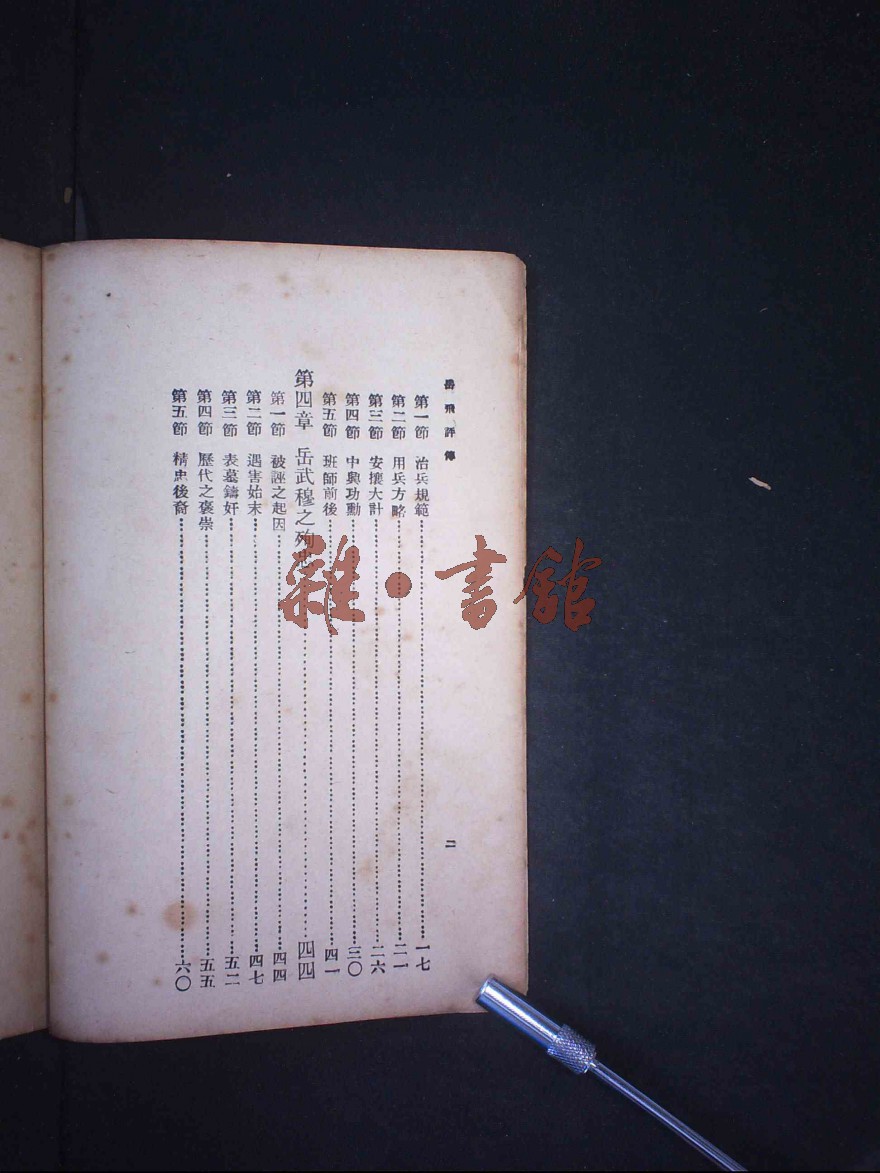 岳飛評傳
二
第一節 治兵規範……一七
第二節 用兵方略……二一
第三節 安攘大計……二六
第四節 中興功勳……三〇
第五節 班師前後……四一
第四章 岳武穆之殉忠……四四
第一節 被誣之起因……四四
第二節 遇害始末……四七
第三節 表墓鑄奸……五二
第四節 歷代之褒崇……五五
第五節 精忠後裔……六〇
雜·書館